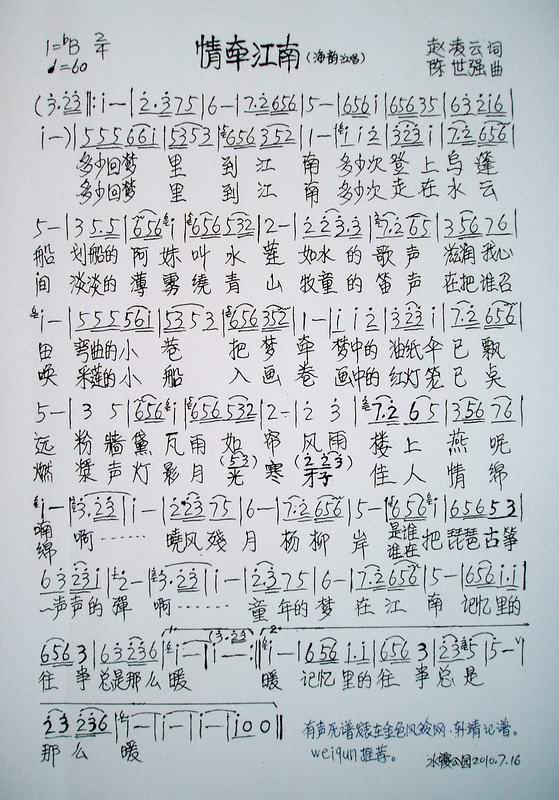 1=♭B 2/4 情牵江南(海韵演唱) 赵凌云词
♩=60 陈世强曲
(3·23‖:i—|2·375|6—|7·2656|5—|656i|65635|632i6|
i—)|55566i|5353|656352|1—|ii2|323i|7·2656|
多少回梦 里 到 江 南 多少次 登 上 乌 蓬
多少回梦 里 到 江 南 多少次 走 在 水 云
5—|35·5|656i|656532|2—|223·3|7·265|35676|
船 划船的 阿 妹 叫 水 莲 如水 的 歌 声 滋润 我心
间 淡淡的 薄 雾 绕 青 山 牧童 的 笛 声 在把 谁召
i—|55556i|5353|656352|1—|ii2|323i|7·2656|
田 弯曲的小 巷 把 梦 牵 梦中的 油纸 伞 已 飘
唤 采莲的小 船 入 画 卷 画中的 红灯 笼 已 点
5—|35|656i|656532|2—|23|7·265|35676|
远 粉 墙 黛 瓦 雨 如 帘 风 雨 楼 上 燕 呢
燃 桨 声 灯 影 月 光 寒 才子 佳 人 情 绵
(53) (223)
i—|3·23|i—|2·2375|6—|7·2656|5—|656i|65653|
喃 啊…… 晓风 残 月 杨 柳 岸 是谁 把 琵琶 古筝
绵 谁在
6323i|2—|3·23|i—|2·375|6—|7·2656|5—|656i·i|
一声声的 弹 啊…… 童 年的 梦 在 江 南 记忆 里的
(3·23
6563|63236|i—|i—:‖i—|656i·i|6563|235|5—|
往 事 总是 那么 暖 暖 记忆 里的 往 事 总 是
23236|i—|i—|i—|i00‖
那 么 暖
有声歌谱发表在金色风铃网·轩靖记谱。
weiqun推荐。
水霞公园2010.7.16